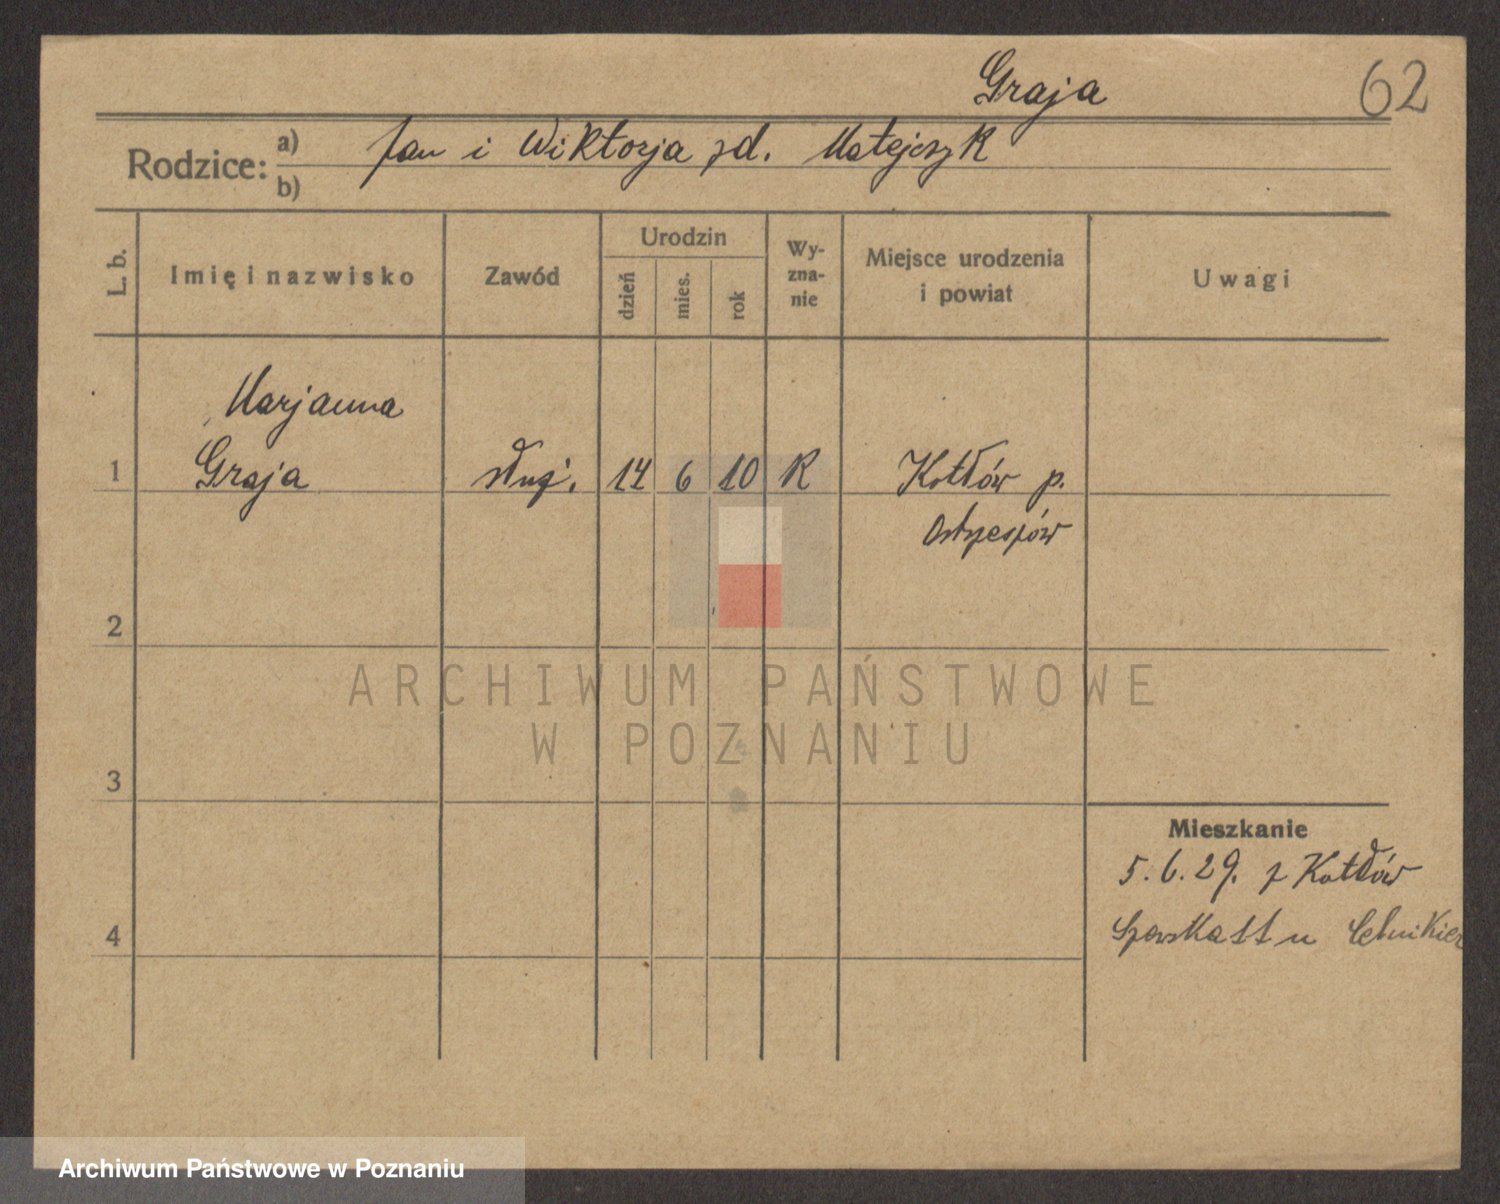 Graja 62
Rodzice: a) Jan i Wiktorja zd. Matejczyk
b)
L. b. Imię i nazwisko Zawód Urodzin dzień mies. rok Wy-zna-nie Miejsce urodzenia i powiat Uwagi
Marjanna
1 Graja służ. 14 6 10 R Kotłów p.
Ostrzeszów
2
ARCHIWUM PAŃSTWOWE
W POZNANIU
3
Mieszkanie
5.6.29. z Kotłów
4 u
Archiwum Państwowe w Poznaniu